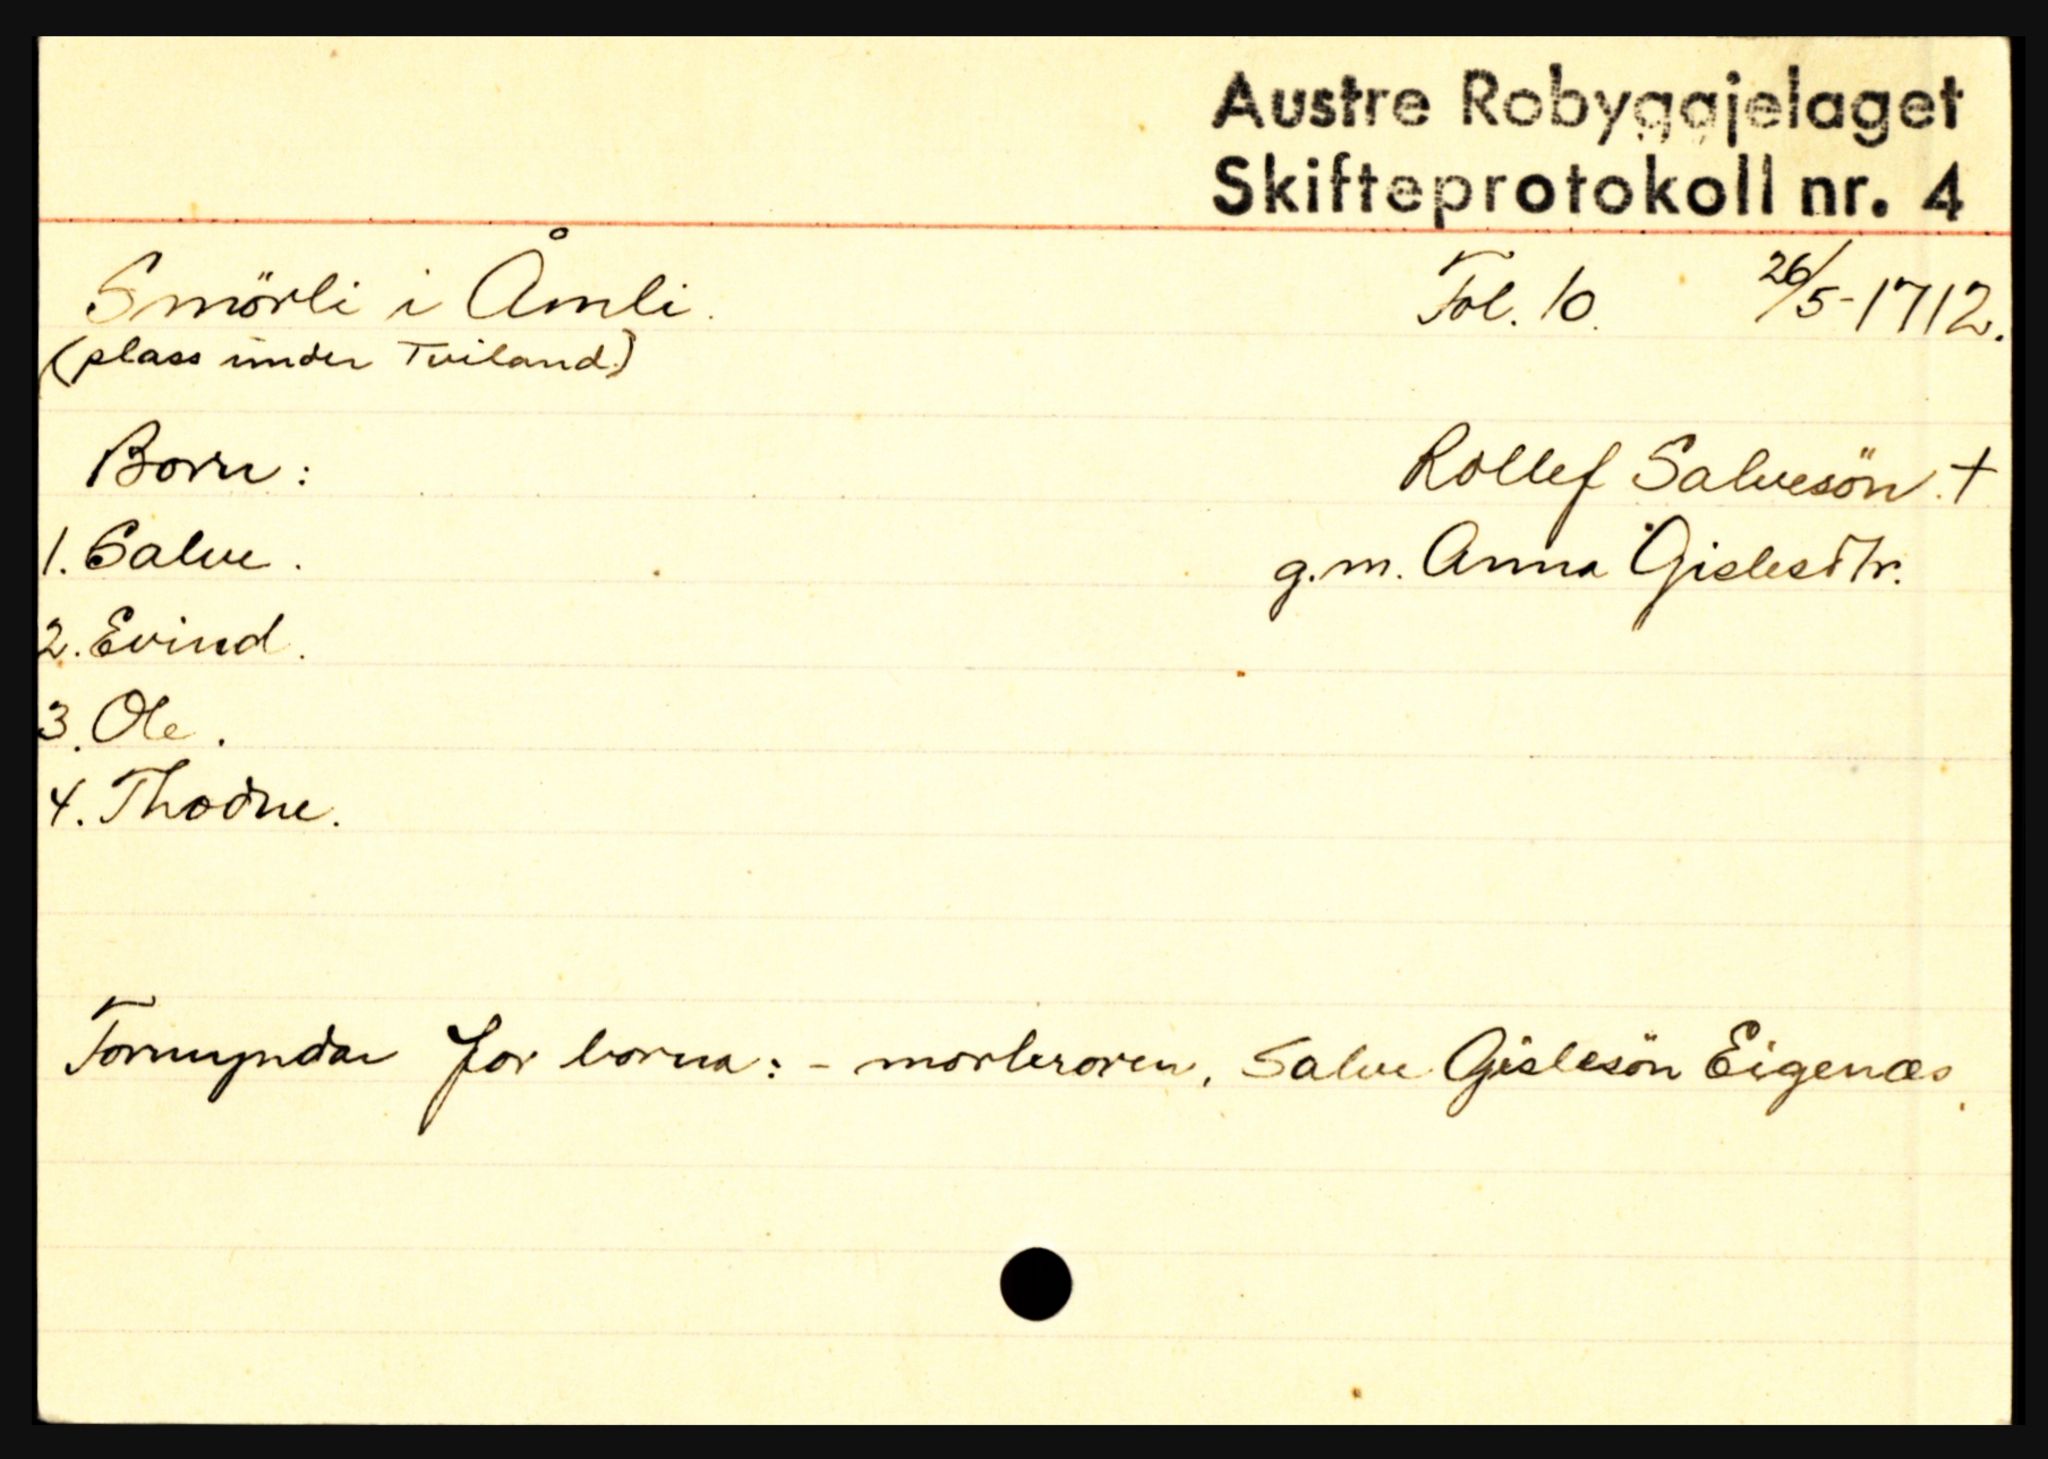 Austre Robyggjelaget
Skifteprotokoll nr. 4
Smörli i Åmli. Fol. 10. 26/5-1712.
(plass under Tviland.)
Born: Rollef Salvesön. †
1. Salve. g.m. Anna Gislesdtr.
2. Evind.
3. Ole.
4. Thodne.
Formyndar for borna: - morbroren, Salve Gislesön Eigenæs.